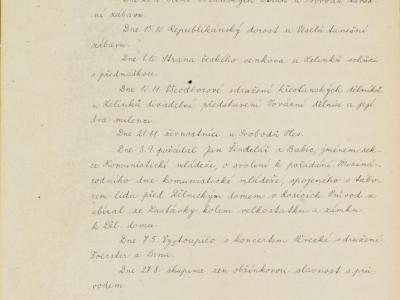 ní zábava.
Dne 15.10. Republikánský dorost u Veselů taneční
zábavu.
Dne 1.10. Strana českého venkova u Kelínků schůzi
s přednáškou.
Dne 10.11. Všeodborové sdružení křesťanských dělníků
u Kelínků divadelní představení Tovární dělnice a její
dva milenci.
Dne 21.11. živnostníci u Svobodů Ples.
Dne 3.9. pořádal Jan Šindelář z Babic, jménem sek-
ce Komunistické mládeže, o svolení k pořádání Meziná-
rodního dne komunistické mládeže, spojeného s tábo-
rem lidu před Dělnickým domem v Rosicích. Průvod se
sbíral ze Zastávky kolem velkostatku a zámku
k Děl. domu.
Dne 7.5. Vystoupilo s koncertem Pěvecké sdružení
Foerster z Brna.
Dne 27.8. skupina žen obžínkovou slavnost s prů-
vodem.